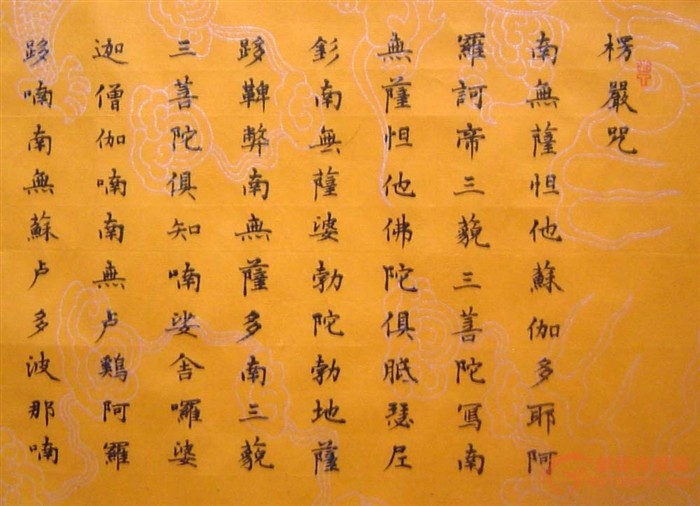 楞嚴咒
南無薩怛他蘇伽多耶阿
羅訶帝三藐三菩陀寫南
無薩怛他佛陀俱胝瑟尼
釤南無薩婆勃陀勃地薩
跢鞞弊南無薩多南三藐
三菩陀俱知喃娑舍囉婆
迦僧伽喃南無卢鷄阿羅
跢喃南無蘇卢多波那喃